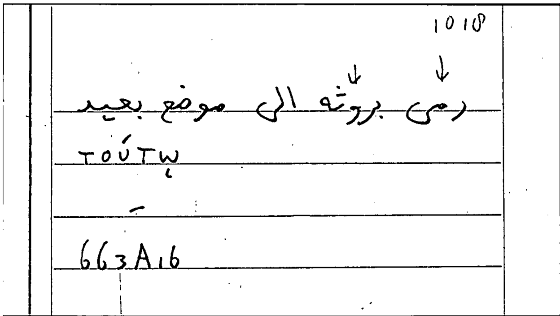 1018
رمى بروثه الى موضع بعيد
τούτῳ
–
663A16